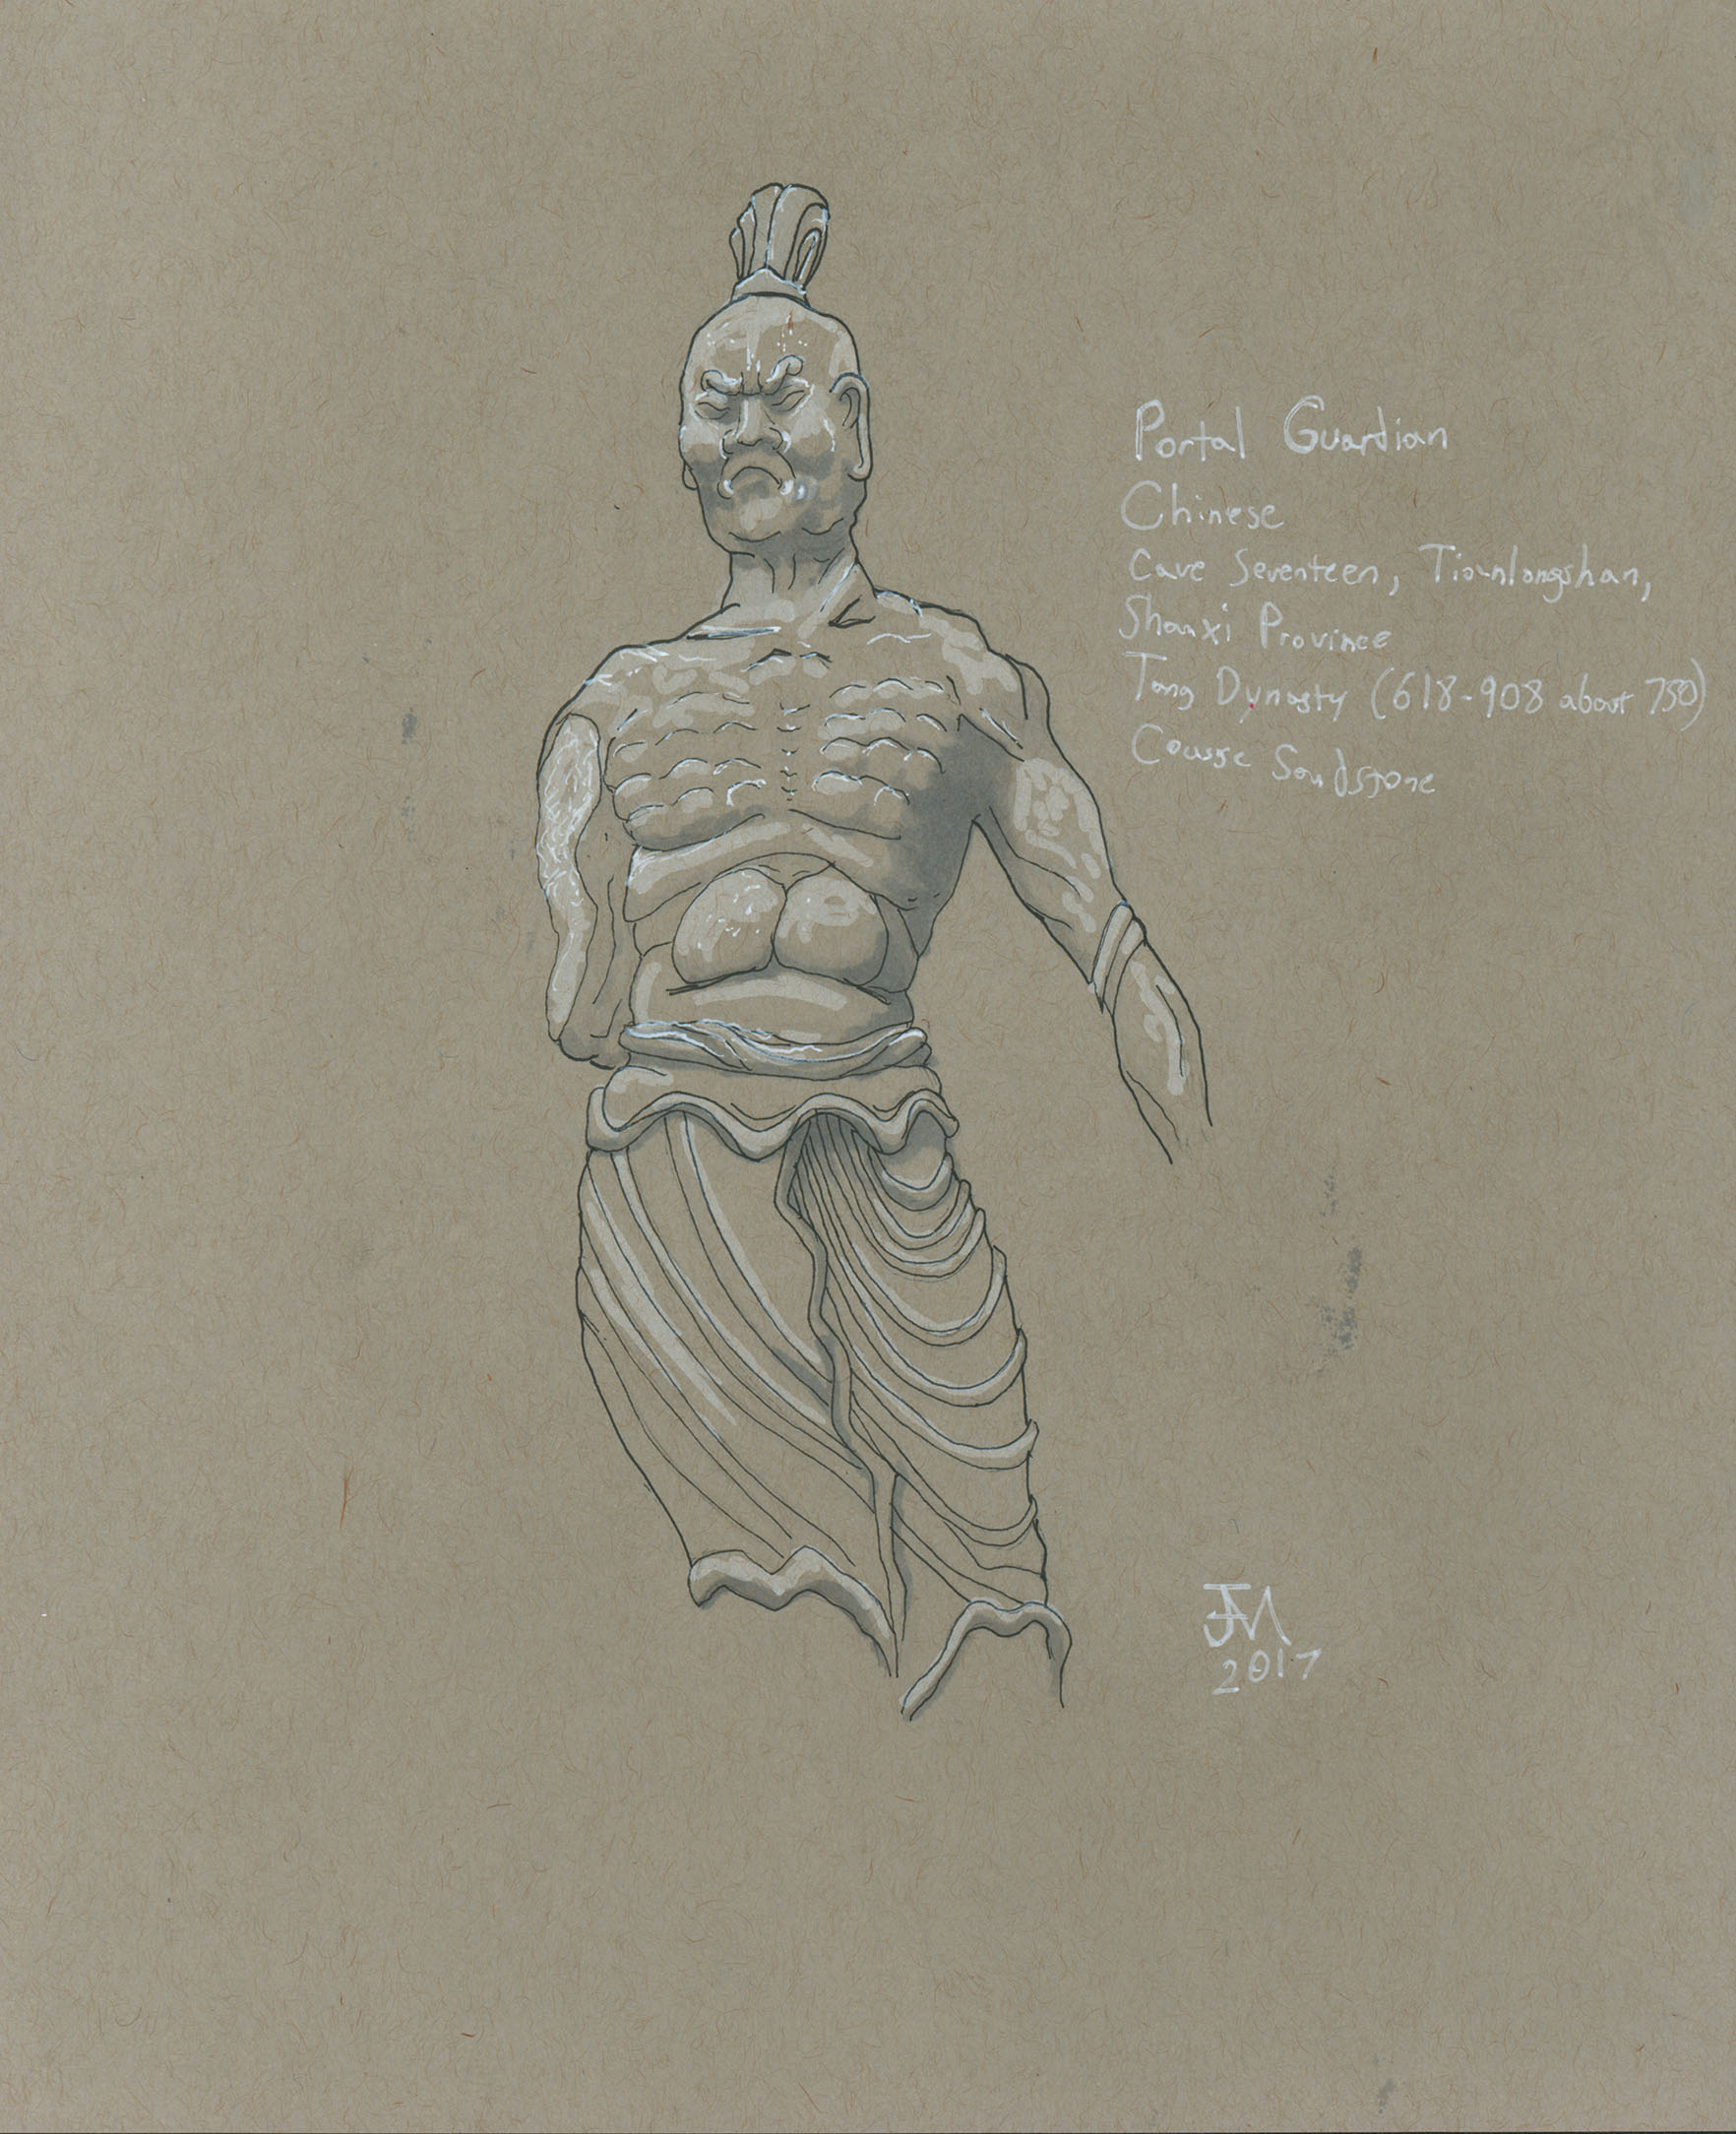 Portal Guardian
Chinese
Cave Seventeen, Tianlongshan,
Shanxi Province
Tang Dynasty (618-908 about 750)
Course Sandstone
JM
2017